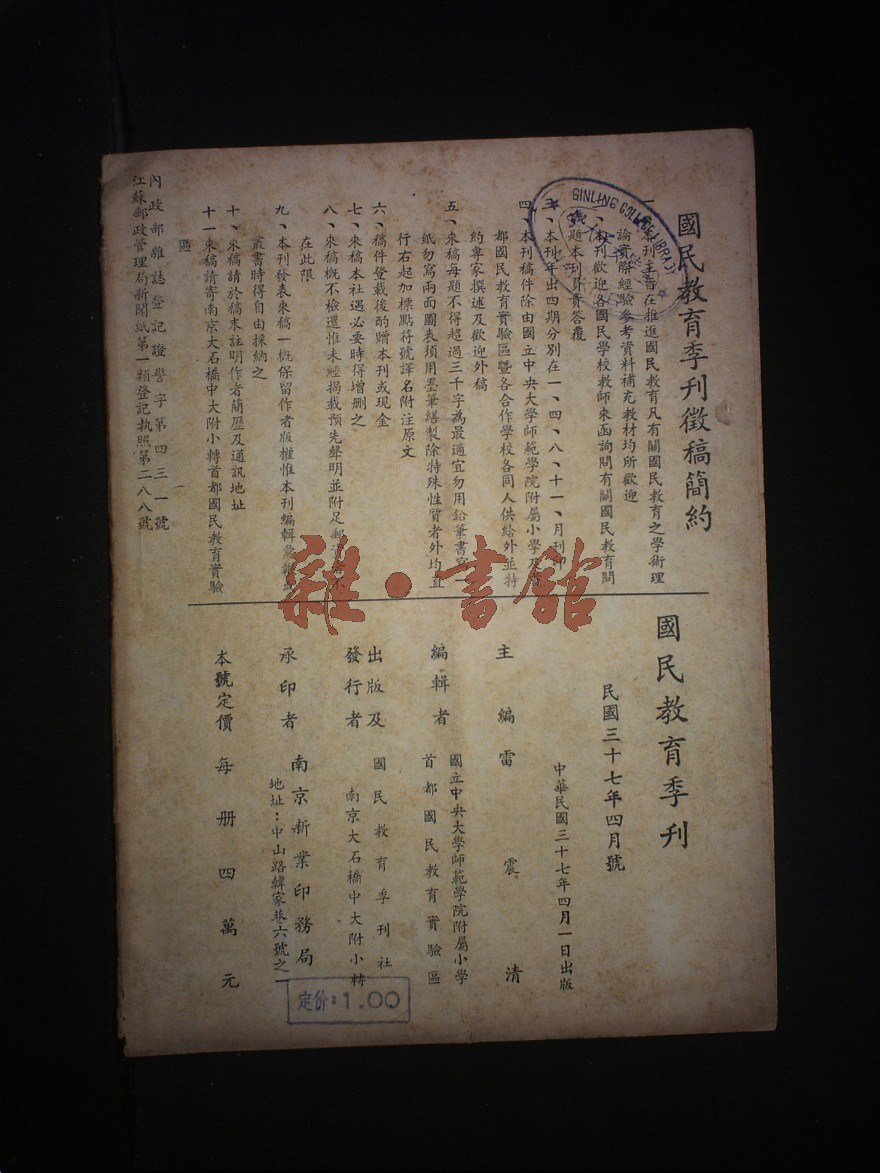 國民教育季刊徵稿簡約
刊主旨在推進國民教育凡有關國民教育之學術理
論實際經驗參考資料補充教材均所歡迎
本刊歡迎各國民學校教師來函詢問有關國民教育問
題本刊負責答覆
本刊年出四期分別在一、四、八、十一、月刊印
四、本刊稿件除由國立中央大學師範學院附屬小學及首
都國民教育實驗區暨各合作學校各同人供給外並特
約專家撰述及歡迎外稿
五、來稿每題不得超過三千字為最適宜勿用鉛筆書寫一
紙勿寫兩面圖表須用墨筆繕製除特殊性質者外均直
行右起加標點符號譯名附注原文
六、稿件登載後酌贈本刊或現金
七、來稿本社遇必要時得增删之
八、來稿概不檢還惟未經揭載預先聲明並附足郵
在此限
九、本刊發表來稿一概保留作者版權惟本刊編輯彙報或
叢書時得自由採納之
十、來稿請於稿末註明作者簡歷及通訊地址
十一來稿請寄南京大石橋中大附小轉首都國民教育實驗
區
內政部雜誌登記證警字第四三一號
江蘇郵政管理局新聞紙第一類登記執照第二八八號
國民教育季刊
民國三十七年四月號
中華民國三十七年四月一日出版
主編雷震清
編輯者
國立中央大學師範學院附屬小學
首都國民教育實驗區
出版及
發行者
國民教育季刊社
南京大石橋中大附小轉
承印者
南京新業印務局
地址：中山路韓家巷六號之一
本號定價每册四萬元
定价：1.00
GINLING COLLEGE LIBRARY
雜·書館